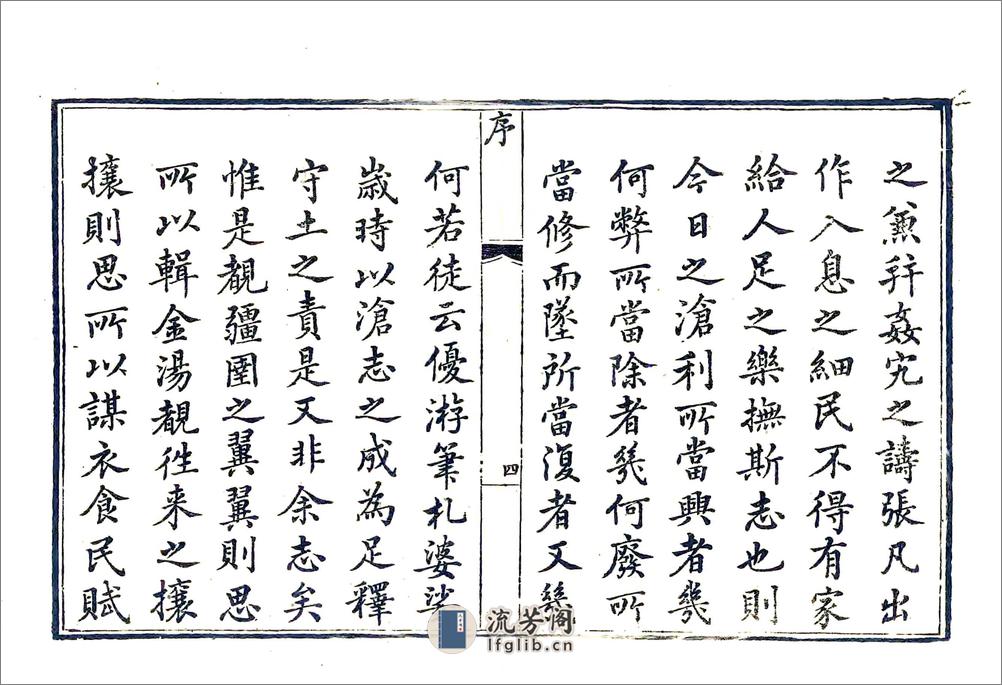 之兼幷姦宄之譸張凡出
作入息之細民不得有家
給人足之樂撫斯志也則
今日之滄利所當興者幾
何弊所當除者幾何廢所
當修而墜所當復者又幾
序
四
何若徒云優游筆札婆娑
歲時以滄志之成為足釋
守土之責是又非余志矣
惟是覩疆圉之翼翼則思
所以輯金湯覩徃来之攘
攘則思所以謀衣食民賦
流芳阁
lfglib.cn